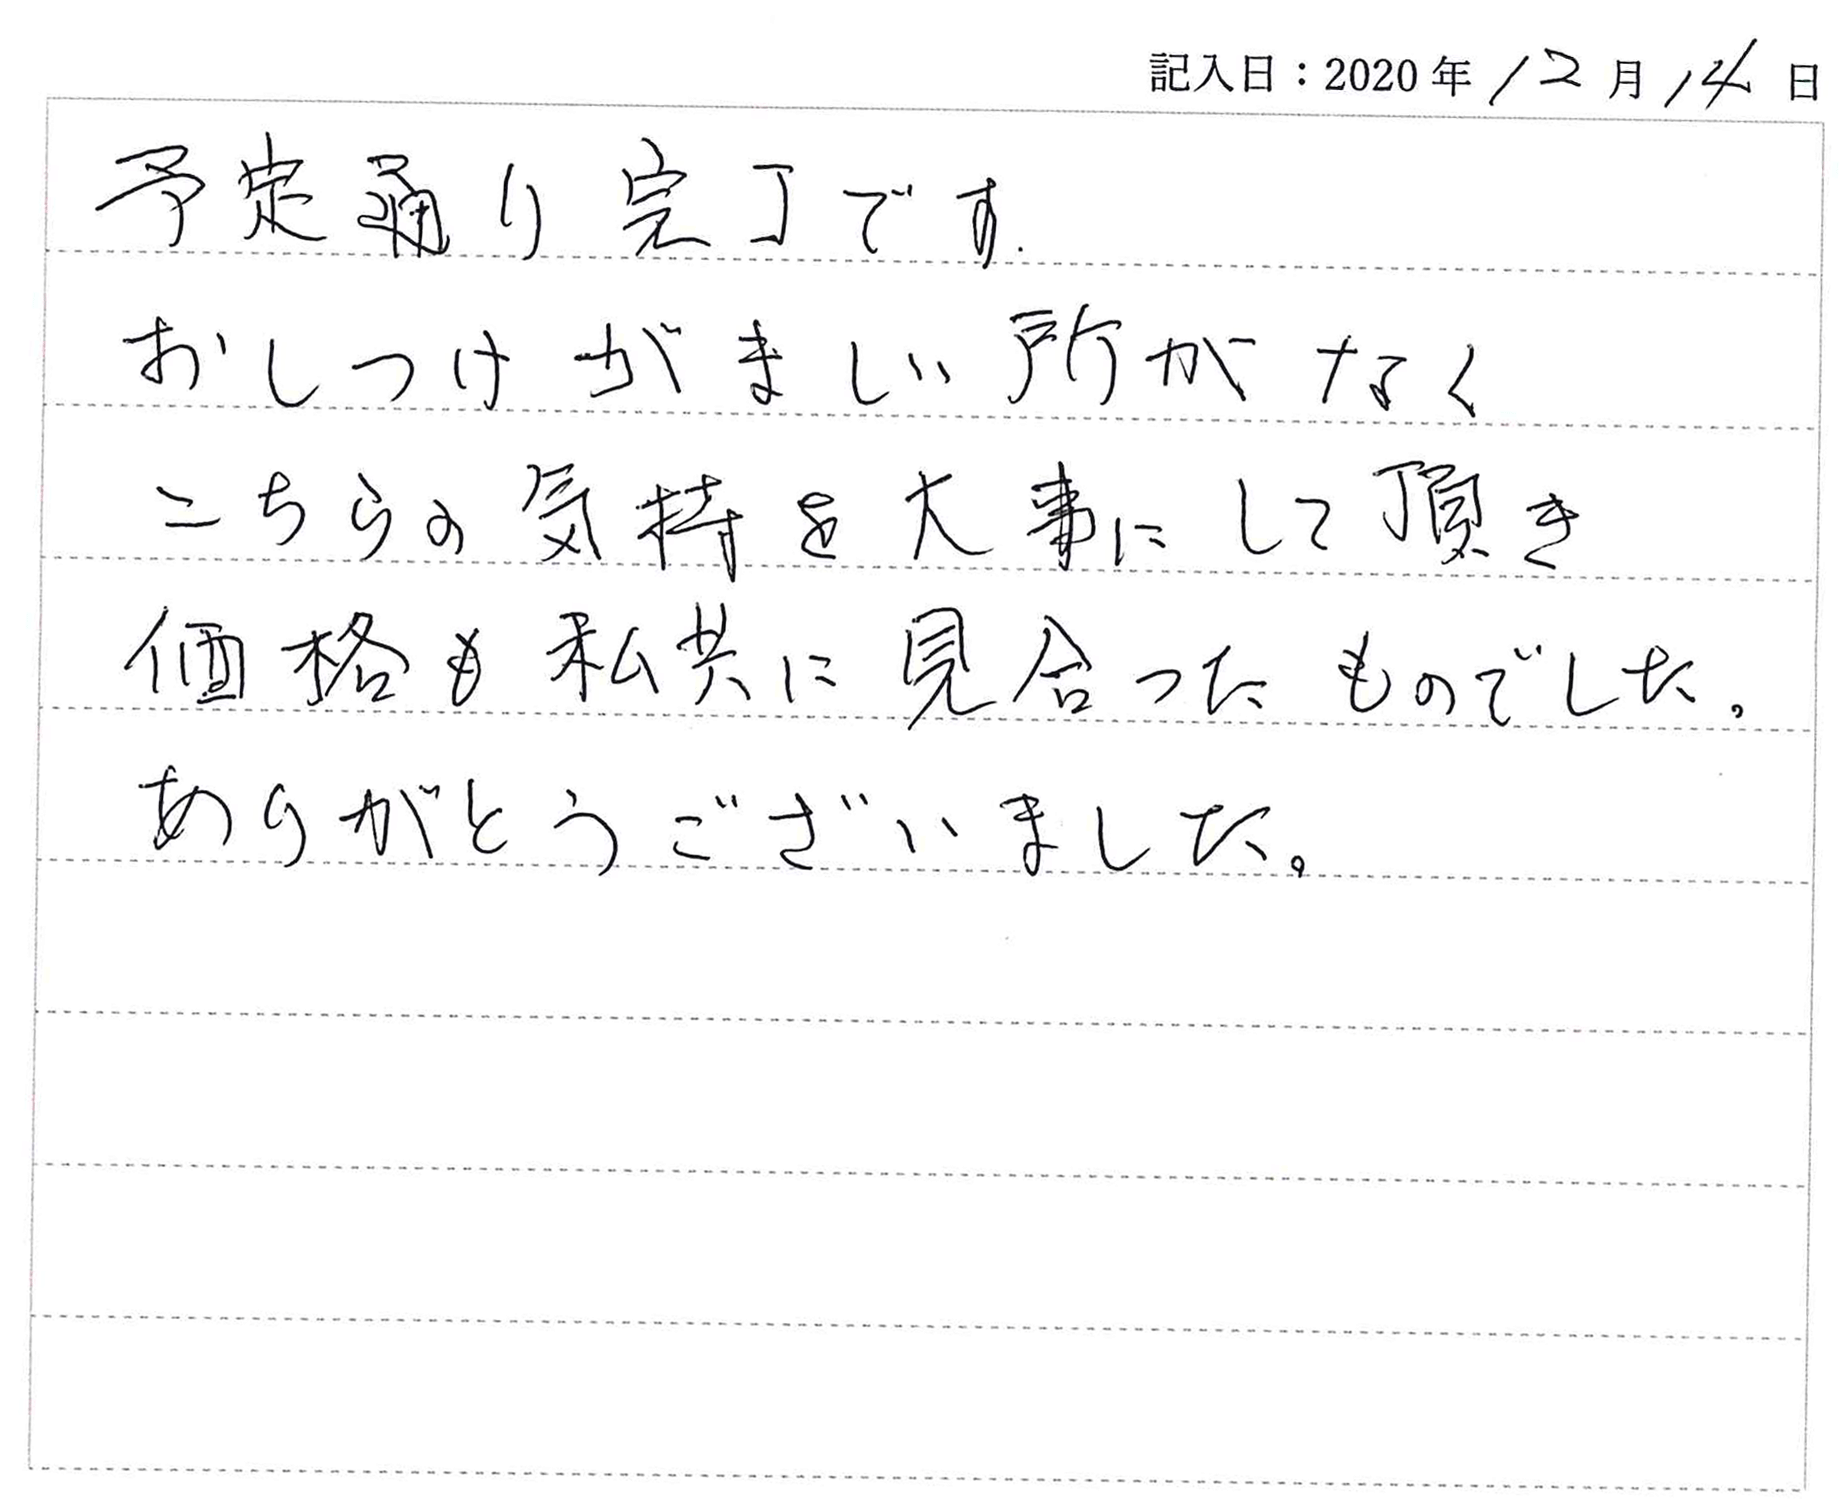 記入日：2020年12月14日
予定通り完了です.
おしつけがましい所がなく
こちらの気持を大事にして頂き
価格も私共に見合ったものでした。
ありがとうございました。